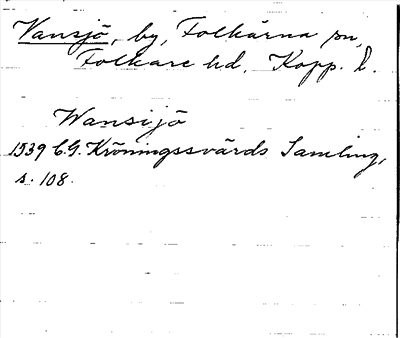 Vansjö, by, Folkärna sn,
Folkare hd. Kopp. l.
Wansijö
1539 C.G. Kröningssvärds Samling,
s. 108.